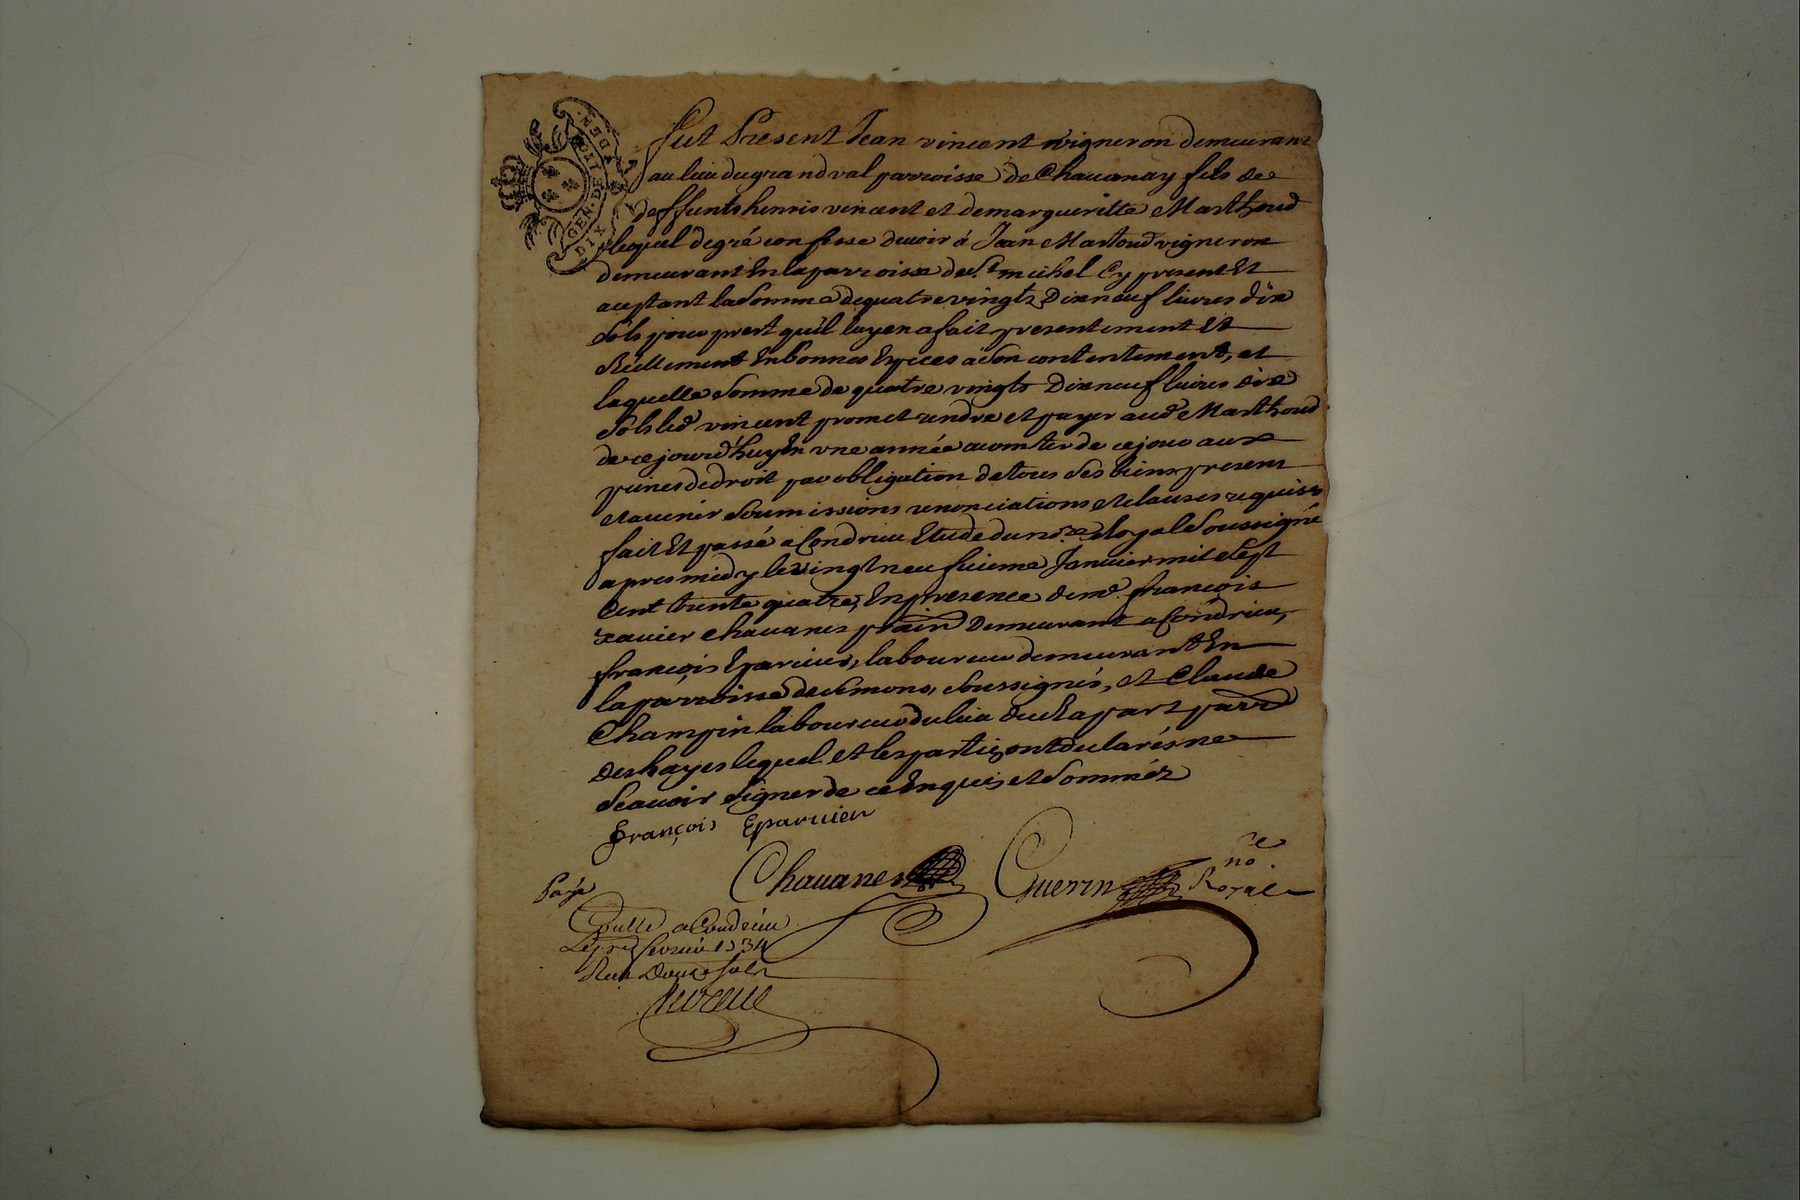 GEN. DE LYON
DIX DEN.
Fut Present Jean vincent vigneron demeurant
au lieu du grand val parroisse de Chauanay fils de
deffunts henris vincent et de margueritte Marthoud
lequel de gré confesse deuoir à Jean Martoud vigneron
demeurant En la parroisse de St michel Cy present Et
aceptant la Somme de quatre vingts Dixneuf liures dix
Sols pour prest qu'il luy en a fait presentement Et
Réellement En bonnes Espices a Son contentement, et
laquelle Somme de quatre vingts Dixneuf liures dix
Sols led vincent promet rendre et payer aud Marthoud
de ce jourd'huy En vne année a comter de ce jour aux
peines de droit par obligation de tous Ses biens present
et auenir Soumissions renonciations et clauses requises
fait Et passé a Condrieu Etude du nore Royal Soussigné
apres midy le vingtneufuieme Januier mil Sept
Cent trente quatre, En presence de me. françois
xauier Chauanes demeurant a Condrieu,
françois Eparuier, laboureur demeurant En
la parroisse de Semons, Soussignés, et Claude
Champin laboureur du lieu de parr
des hayes lequel et les parties ont declaré ne
Scauoir Signer de ce Enquis et Sommés
françois Eparuier
Chauanes Guerin nore Royal
Payé
Conllé a Condrieu
Le pre feurier 1734
Reçu Douze Sols